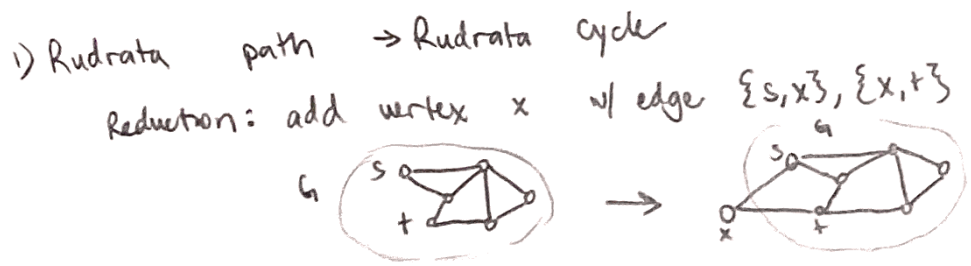 1) Rudrata path → Rudrata cycle
Reduction: add vertex x w/ edge {s,x}, {x,t}
G s t → G s t x